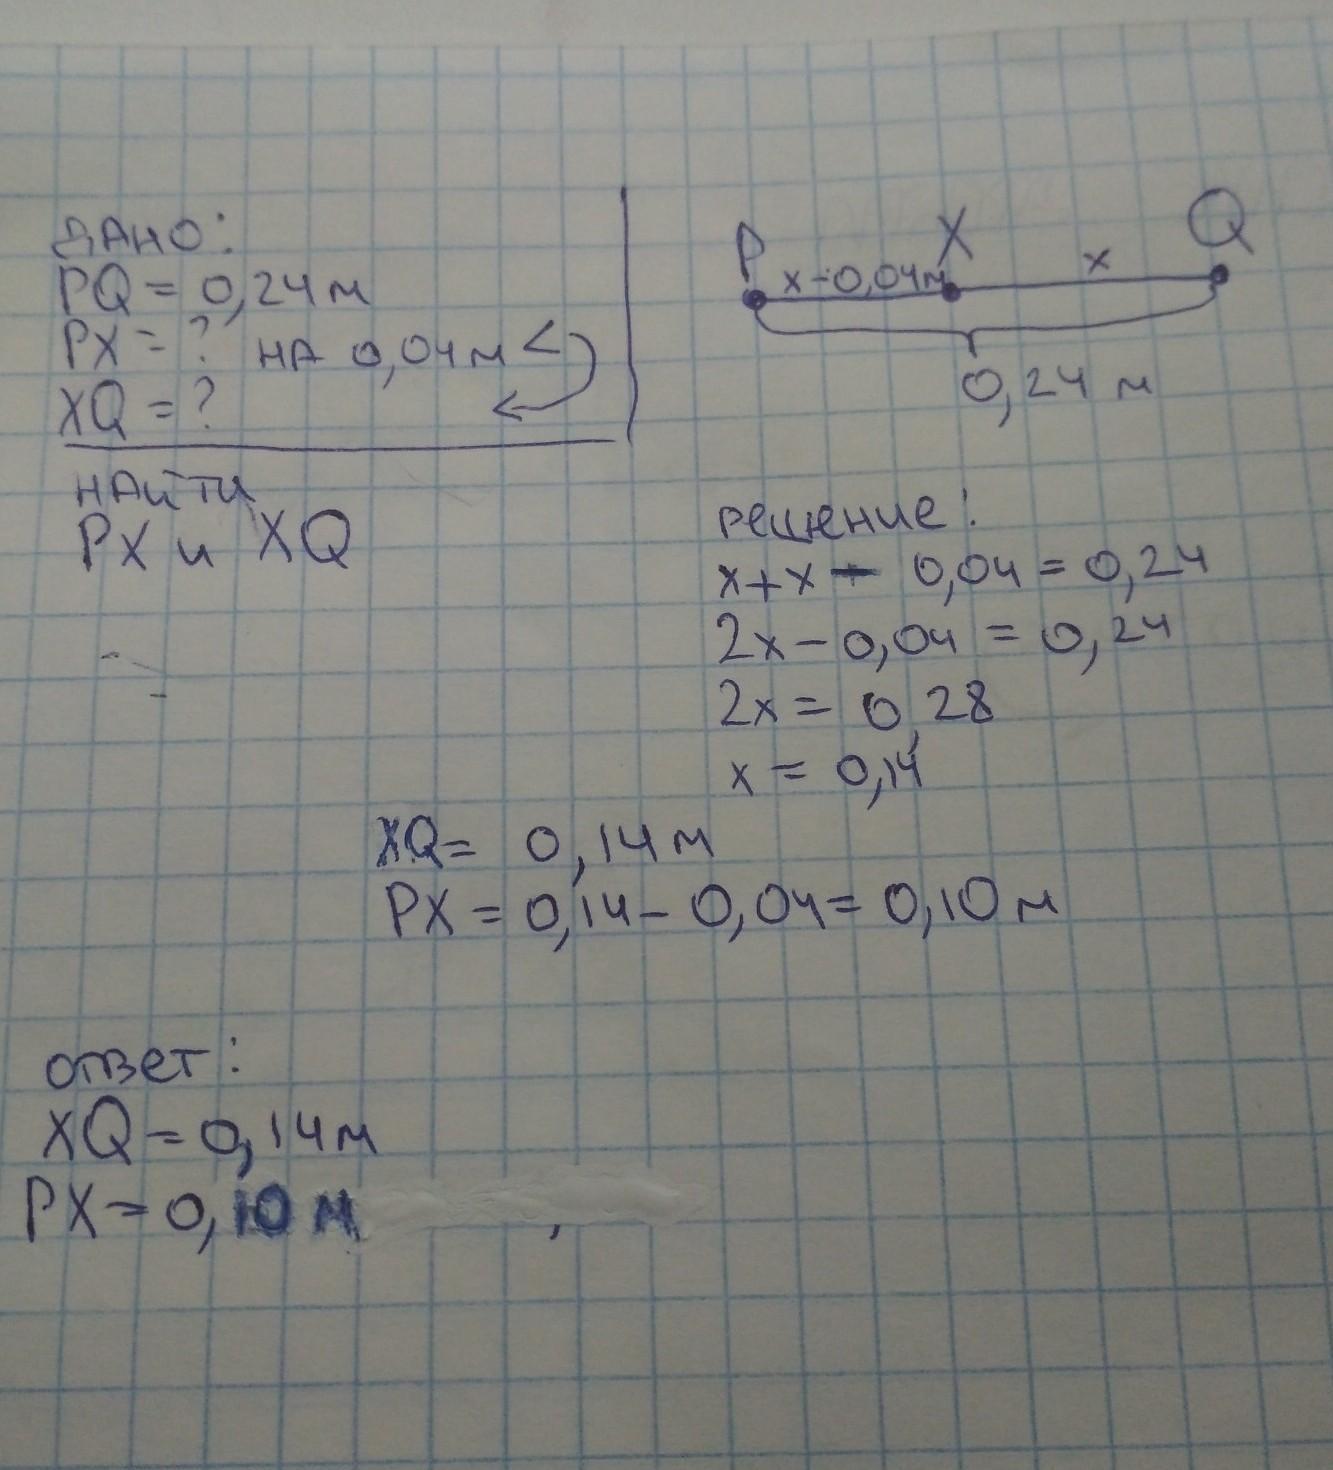 ДАНО:
PQ = 0,24 м
PX = ? НА 0,04 м <
XQ = ?
НАЙТИ
PX и XQ
P X Q
x-0,04м x
0,24 м
решение:
x+x - 0,04 = 0,24
2x - 0,04 = 0,24
2x = 0,28
x = 0,14
XQ = 0,14 м
PX = 0,14 - 0,04 = 0,10 м
ответ:
XQ = 0,14 м
PX = 0,10 м ,